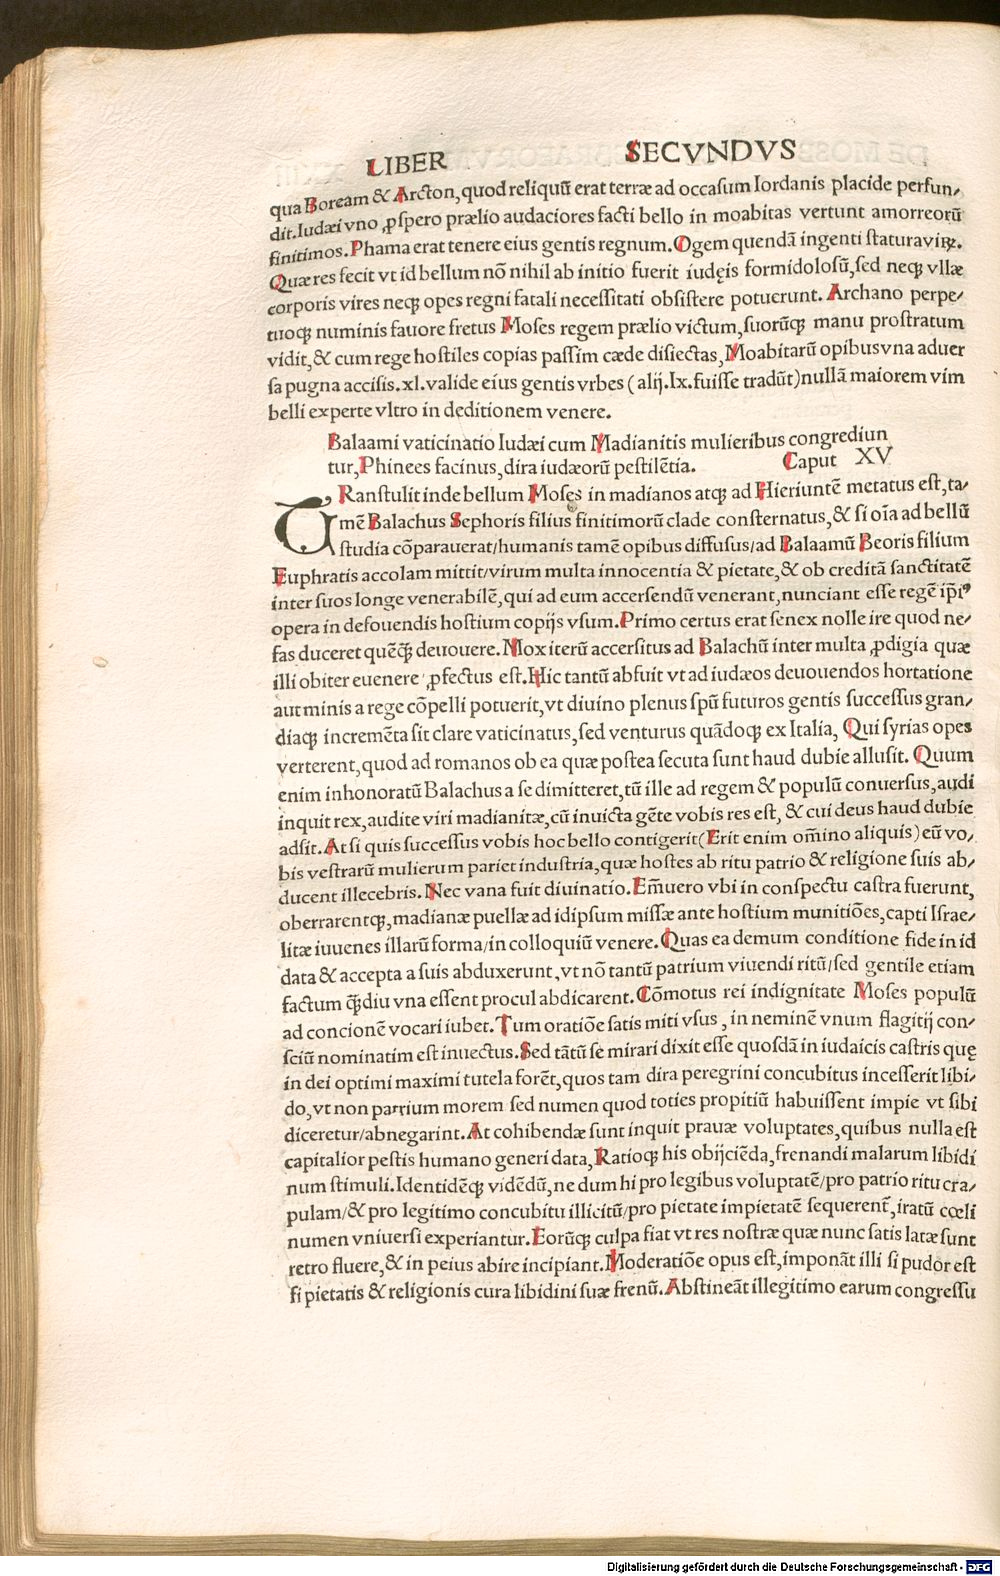 LIBER SECVNDVS
qua Boream & Arcton, quod reliquũ erat terræ ad occasum Iordanis placide perfun/
dit. Iudæi vno ꝓspero prælio audaciores facti bello in moabitas vertunt amorreorũ
finitimos. Phama erat tenere eius gentis regnum. Ogem quendã ingenti staturavirꝝ.
Quæ res fecit vt id bellum nõ nihil ab initio fuerit iudęis formidolosũ, sed neqꝫ vllæ
corporis vires neqꝫ opes regni fatali necessitati obsistere potuerunt. Archano perpe/
tuoqꝫ numinis fauore fretus Moses regem prælio victum, suorũqꝫ manu prostratum
vidit, & cum rege hostiles copias passim cæde disiectas, Moabitarũ opibus vna aduer
sa pugna accisis. xl. valide eius gentis vrbes (alij. lx. fuisse tradũt) nullã maiorem vim
belli experte vltro in dęditionem venere.
Balaami vaticinatio Iudæi cum Madianitis mulieribus congrediun
tur, Phinees facinus, dira iudæorũ pestilẽtia. Caput XV
TRanstulit inde bellum Moses in madianos atqꝫ ad Hieriuntẽ metatus est, ta/
mẽ Balachus Sephoris filius finitimorũ clade consternatus, & si oĩa ad bellũ
studia cõparauerat/humanis tamẽ opibus diffusus/ad Balaamũ Beoris filium
Euphratis accolam mittit/virum multa innocentia & pietate, & ob creditã sanctitatẽ
inter suos longe venerabilẽ, qui ad eum accersendũ venerant, nunciant esse regẽ ip̃iꝰ
opera in defouendis hostium copijs vsum. Primo certus erat senex nolle ire quod ne/
fas duceret quẽqꝫ̃ deuouere. Mox iterũ accersitus ad Balachũ inter multa ꝓdigia quæ
illi obiter euenere ꝓfectus est. Hic tantũ abfuit vt ad iudæos deuouendos hortatione
aut minis a rege cõpelli potuerit, vt diuino plenus spũ futuros gentis successus gran/
diaqꝫ incremẽta sit clare vaticinatus, sed venturus quãdoqꝫ ex Italia, Qui syrias opes
verterent, quod ad romanos ob ea quæ postea secuta sunt haud dubie allusit. Quum
enim inhonoratũ Balachus a se dimitteret, tũ ille ad regem & populũ conuersus, audi
inquit rex, audite viri madianitæ, cũ inuicta gẽte vobis res est, & cui deus haud dubie
adsit. At si quis successus vobis hoc bello contigerit (Erit enim om̃ino aliquis) eũ vo/
bis vestrarũ mulierum pariet industria, quæ hostes ab ritu patrio & religione suis ab/
ducent illecebris. Nec vana fuit diuinatio. Em̃uero vbi in conspectu castra fuerunt,
oberrarentqꝫ, madianæ puellæ ad idipsum missæ ante hostium munitiões, capti Israe/
litæ iuuenes illarũ forma/in colloquiũ venere. Quas ea demum conditione fide in id
data & accepta a suis abduxerunt, vt nõ tantũ patrium viuendi ritũ/sed gentile etiam
factum qꝫ̃diu vna essent procul abdicarent. Cõmotus rei indignitate Moses populũ
ad concionẽ vocari iubet. Tum oratiõe satis miti vsus, in neminẽ vnum flagitij con/
sciũ nominatim est inuectus. Sed tãtũ se mirari dixit esse quosdã in iudaicis castris quę
in dei optimi maximi tutela forẽt, quos tam dira peregrini concubitus incesserit libi/
do, vt non patrium morem sed numen quod toties propitiũ habuissent impie vt sibi
diceretur/abnegarint. At cohibendæ sunt inquit prauæ voluptates, quibus nulla est
capitalior pestis humano generi data, Ratioqꝫ his obijciẽda, frenandi malarum libidi
num stimuli. Identidẽqꝫ vidẽdũ, ne dum hi pro legibus voluptatẽ/pro patrio ritu cra/
pulam/& pro legitimo concubitu illicitũ/pro pietate impietatẽ sequerent̃, iratũ cœli
numen vniuersi experiantur. Eorũqꝫ culpa fiat vt res nostræ quæ nunc satis latæ sunt
retro fluere, & in peius abire incipiant. Moderatiõe opus est, imponãt illi si pudor est
si pietatis & religionis cura libidini suæ frenũ. Abstineãt illegitimo earum congressu
Digitalisierung gefördert durch die Deutsche Forschungsgemeinschaft - DFG